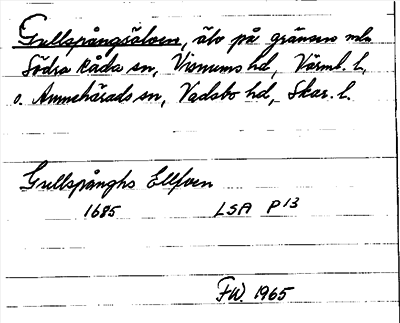 Gullspångsälven, älv på gränsen mln
Södra Råda sn, Visnums hd, Värml. l.,
o. Amnehärads sn, Vadsbo hd, Skar. l.
Gullspånghs Ellfven
1685 LSA P 13
F.W. 1965